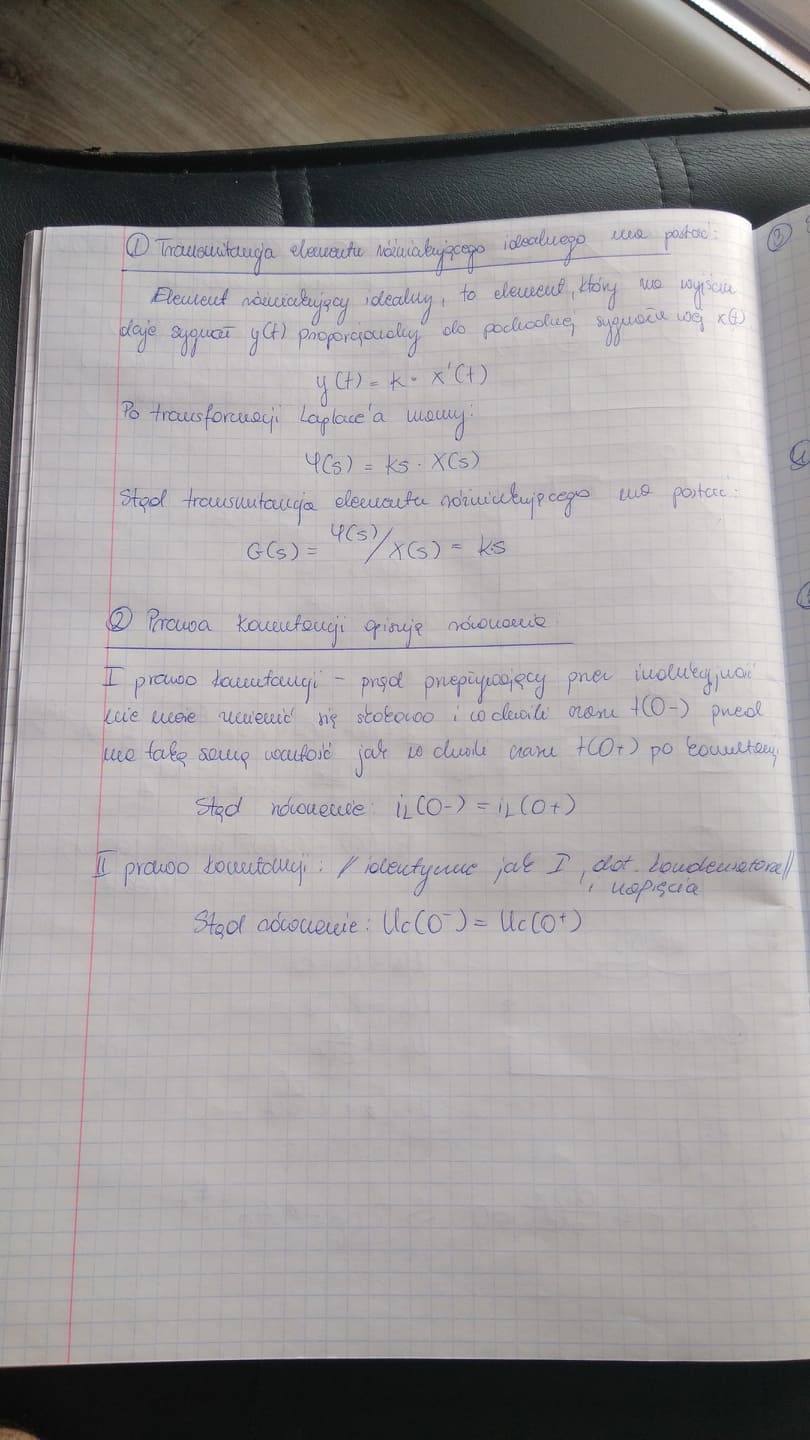 ① Transmitancja elementu różniakującego idealnego ma postać:
Element różniakujący idealny, to element, który na wyjściu
daje sygnał y(t) proporcjonalny do pochodnej sygnału wej x(t)
y(t) = k · x'(t)
Po transformacji Laplace'a mamy:
Y(s) = ks · X(s)
Stąd transmitancja elementu różniakującego ma postać:
G(s) = Y(s)/X(s) = k·s
② Prawa komutacji opisują równania
I prawo komutacji - prąd przepływający przez indukcyjność
nie może zmienić się skokowo i w chwili czasu t(0-) przed
ma taką samą wartość jak w chwili czasu t(0+) po komutacji
Stąd równanie: iL(0-) = iL(0+)
II prawo komutacji: // identyczne jak I, dot. kondensatora //
i napięcia
Stąd równanie: Uc(0⁻) = Uc(0⁺)
③